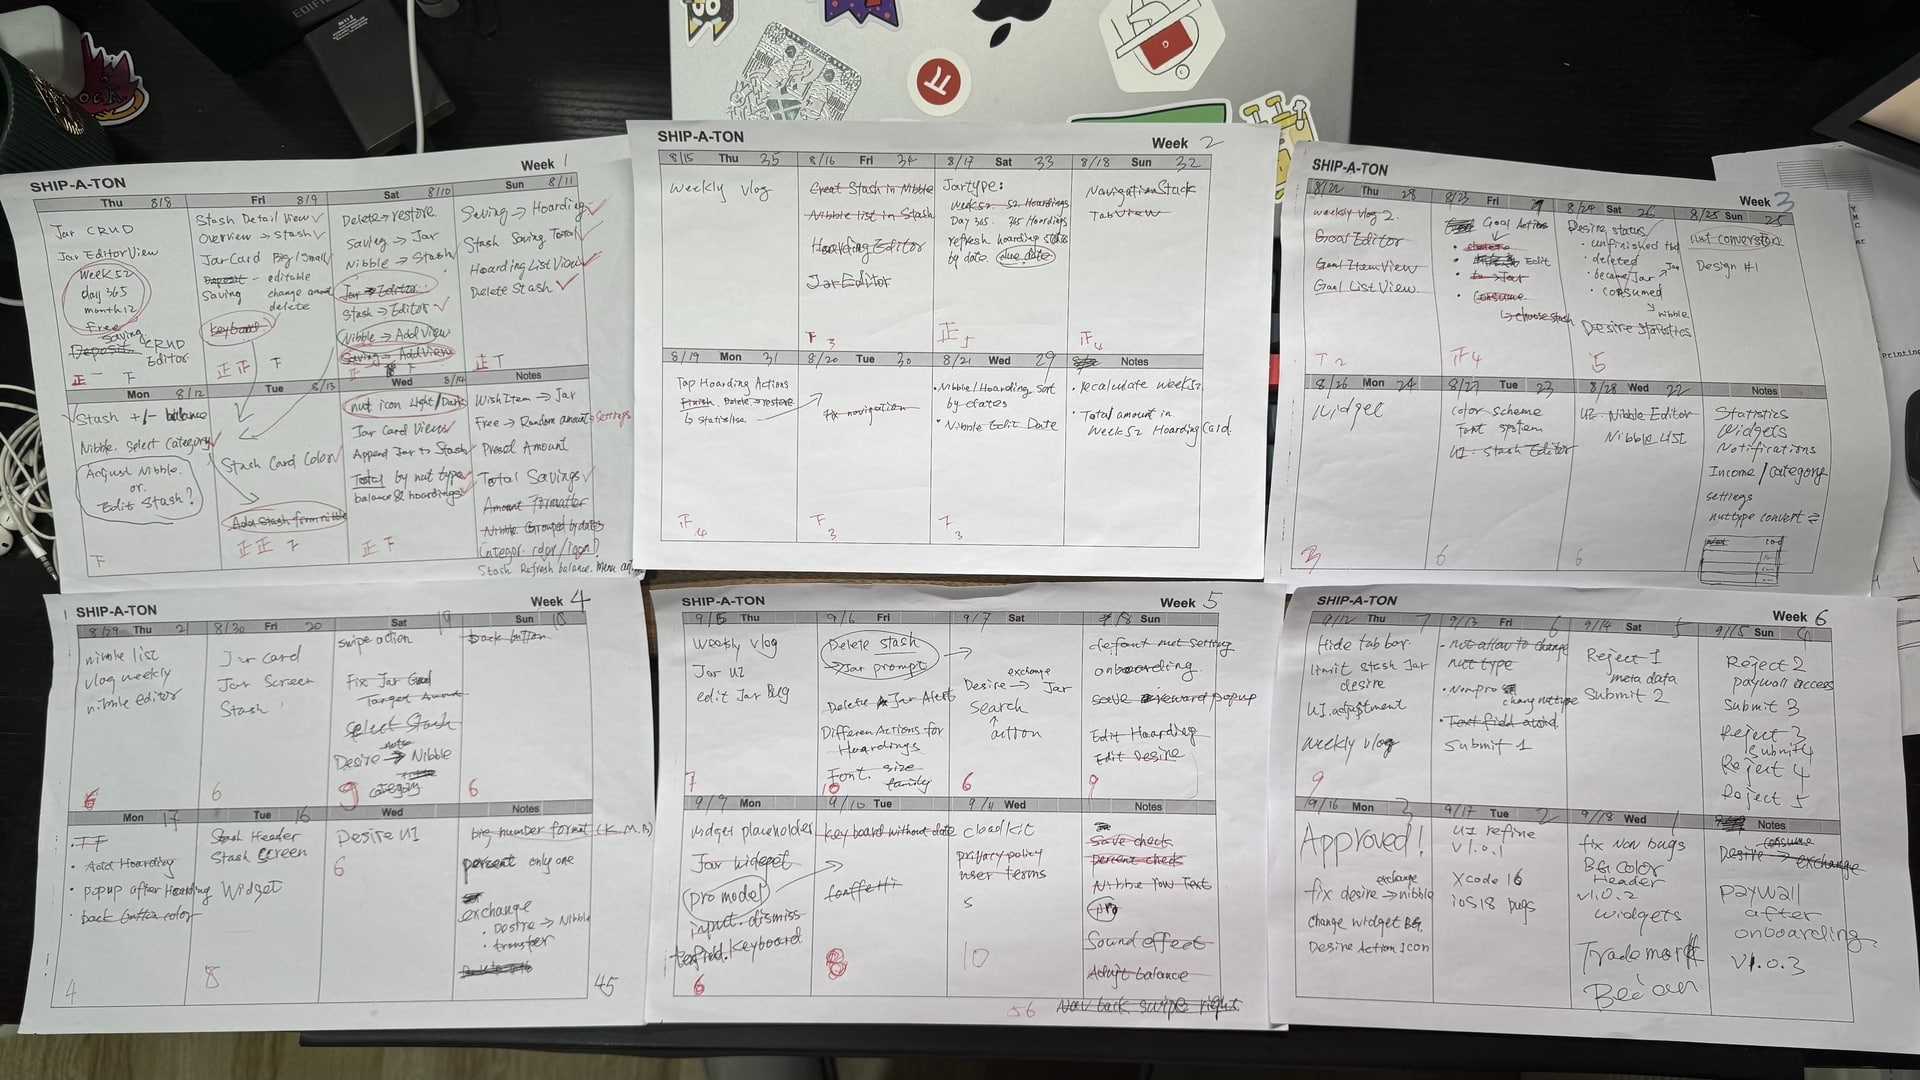 SHIP-A-TON
Week 1
Thu 8/8
Jar CRUD
Jar EditorView
Week52
day 365
month12
Free
Saving
Deposit CRUD
Editor
正 一 下
Fri 8/9
Stash Detail View
Overview → Stash
JarCard Big/Small
Deposit
Saving
editable
change amount
delete
keyboard
正 正 下
Sat 8/10
Delete → restore
Saving → Jar
Nibble → Stash
Jar → Editor
Stash → Editor
Nibble → Add View
Saving → Add View
Sun 8/11
Saving → Hoarding
Stash Saving Total
Hoarding List View
Delete Stash
正 T
Mon 8/12
Stash +/- balance
Nibble. Select Category
Adjust Nibble.
or.
Edit Stash?
下
Tue 8/13
Stash Card Color
Add stash form nibble
正 正 下
Wed 8/14
nut icon Light/Dark
Jar Card View
Append Jar to Stash
Total by nut type
balance & hoardings
正 下
Notes
WishItem → Jar
Free → Random amount → Settings
Preset Amount
Total Savings
Amount Formatter
Nibble Grouped by dates
Categor. color/icon?
Stash Refresh balance. Menu
SHIP-A-TON
Week 2
8/15 Thu 35
Weekly vlog
8/16 Fri 34
Creat Stash in Nibble
Nibble list in Stash
Hoarding Editor
Jar Editor
下 3
8/17 Sat 33
Jartype:
Week52. 52 Hoardings
Day 365. 365 Hoardings
refresh hoarding status
by date. due date
正 5
8/18 Sun 32
NavigationStack
TabView
8/19 Mon 31
Tap Hoarding Actions
Finish Delete → restore
4
8/20 Tue 30
fix navigation
下 3
8/21 Wed 29
• Nibble/Hoarding Sort
by dates
• Nibble Edit Date
下 3
Notes
• recalculate week52
• Total amount in
Week52 Hoarding Card
SHIP-A-TON
Week 3
8/22 Thu 28
weekly vlog 2.
Goal Editor
Goal Item View
Goal List View
T 2
8/23 Fri 27
Goal Action
• delete
• Edit
• to → Jar
• Consume
↳ choose stash
4
8/24 Sat 26
Desire status
• unfinished
• deleted
• became Jar → Jar
• consumed
↘ nibble
Desire statistics
5
8/25 Sun 25
nut conversion
Design #1
8/26 Mon 24
Widget
3
8/27 Tue 23
color scheme
Font system
UI. Stash Editor
6
8/28 Wed 22
UI. Nibble Editor
Nibble List
6
Notes
Statistics
Widgets
Notifications
Income/category
settings
nuttype convert ⇌
SHIP-A-TON
Week 4
8/29 Thu 21
nibble list
vlog weekly
nibble editor
6
8/30 Fri 20
Jar card
Jar Screen
Stash
6
Sat 19
swipe action
Fix Jar Goal
Target Amount
select Stash
note
Desire → Nibble
category
9
Sun 18
back button
6
Mon 17
• Add Hoarding
• popup after Hoarding
• back button color
4
Tue 16
Stash Header
Stash Screen
Widget
8
Wed
Desire UI
6
Notes
big number format (K.M.B)
percent only one
exchange
• Desire → Nibble
• transfer
45
SHIP-A-TON
Week 5
9/5 Thu
Weekly vlog
Jar UI
edit Jar Bug
7
9/6 Fri
Delete stash
→ Jar prompt
Delete Jar Alert
Differen Actions for
Hoardings
Font. size
family
10
9/7 Sat
exchange
Desire → Jar
Search
↑
action
6
9/8 Sun
default nut setting
onboarding
save reward popup
Edit Hoarding
Edit Desire
9
9/9 Mon
widget placeholder
Jar widget
pro model
input. dismiss
textfield. Keyboard
6
9/10 Tue
keyboard without date
confetti
8
9/11 Wed
cloadkit
privacy policy
user terms
s
10
Notes
Save check
percent check
Nibble row Text
Pro
Sound effect
Adjust balance
56 Nav back swipe right
SHIP-A-TON
Week 6
9/12 Thu 7
Hide tab bar
limit stash Jar
desire
UI.adjustment
Weekly vlog
9
9/13 Fri 6
• not allow to change
nut type
• Nonpro
chang nuttype
• Text field
Submit 1
9/14 Sat 5
Reject 1
meta data
Submit 2
9/15 Sun 4
Reject 2
paywall access
Submit 3
Reject 3
Submit 4
Reject 4
Reject 5
9/16 Mon 3
Approved!
exchange
fix desire → nibble
change widget BG.
Desire Action Icon
9/17 Tue 2
UI refine
v1.0.1
Xcode 16
iOS18 bugs
9/18 Wed 1
fix Nav bugs
BG color
Header
v1.0.2
widgets
Trademark
Notes
consume
Desire → exchange
paywall
after
onboarding.
v1.0.3